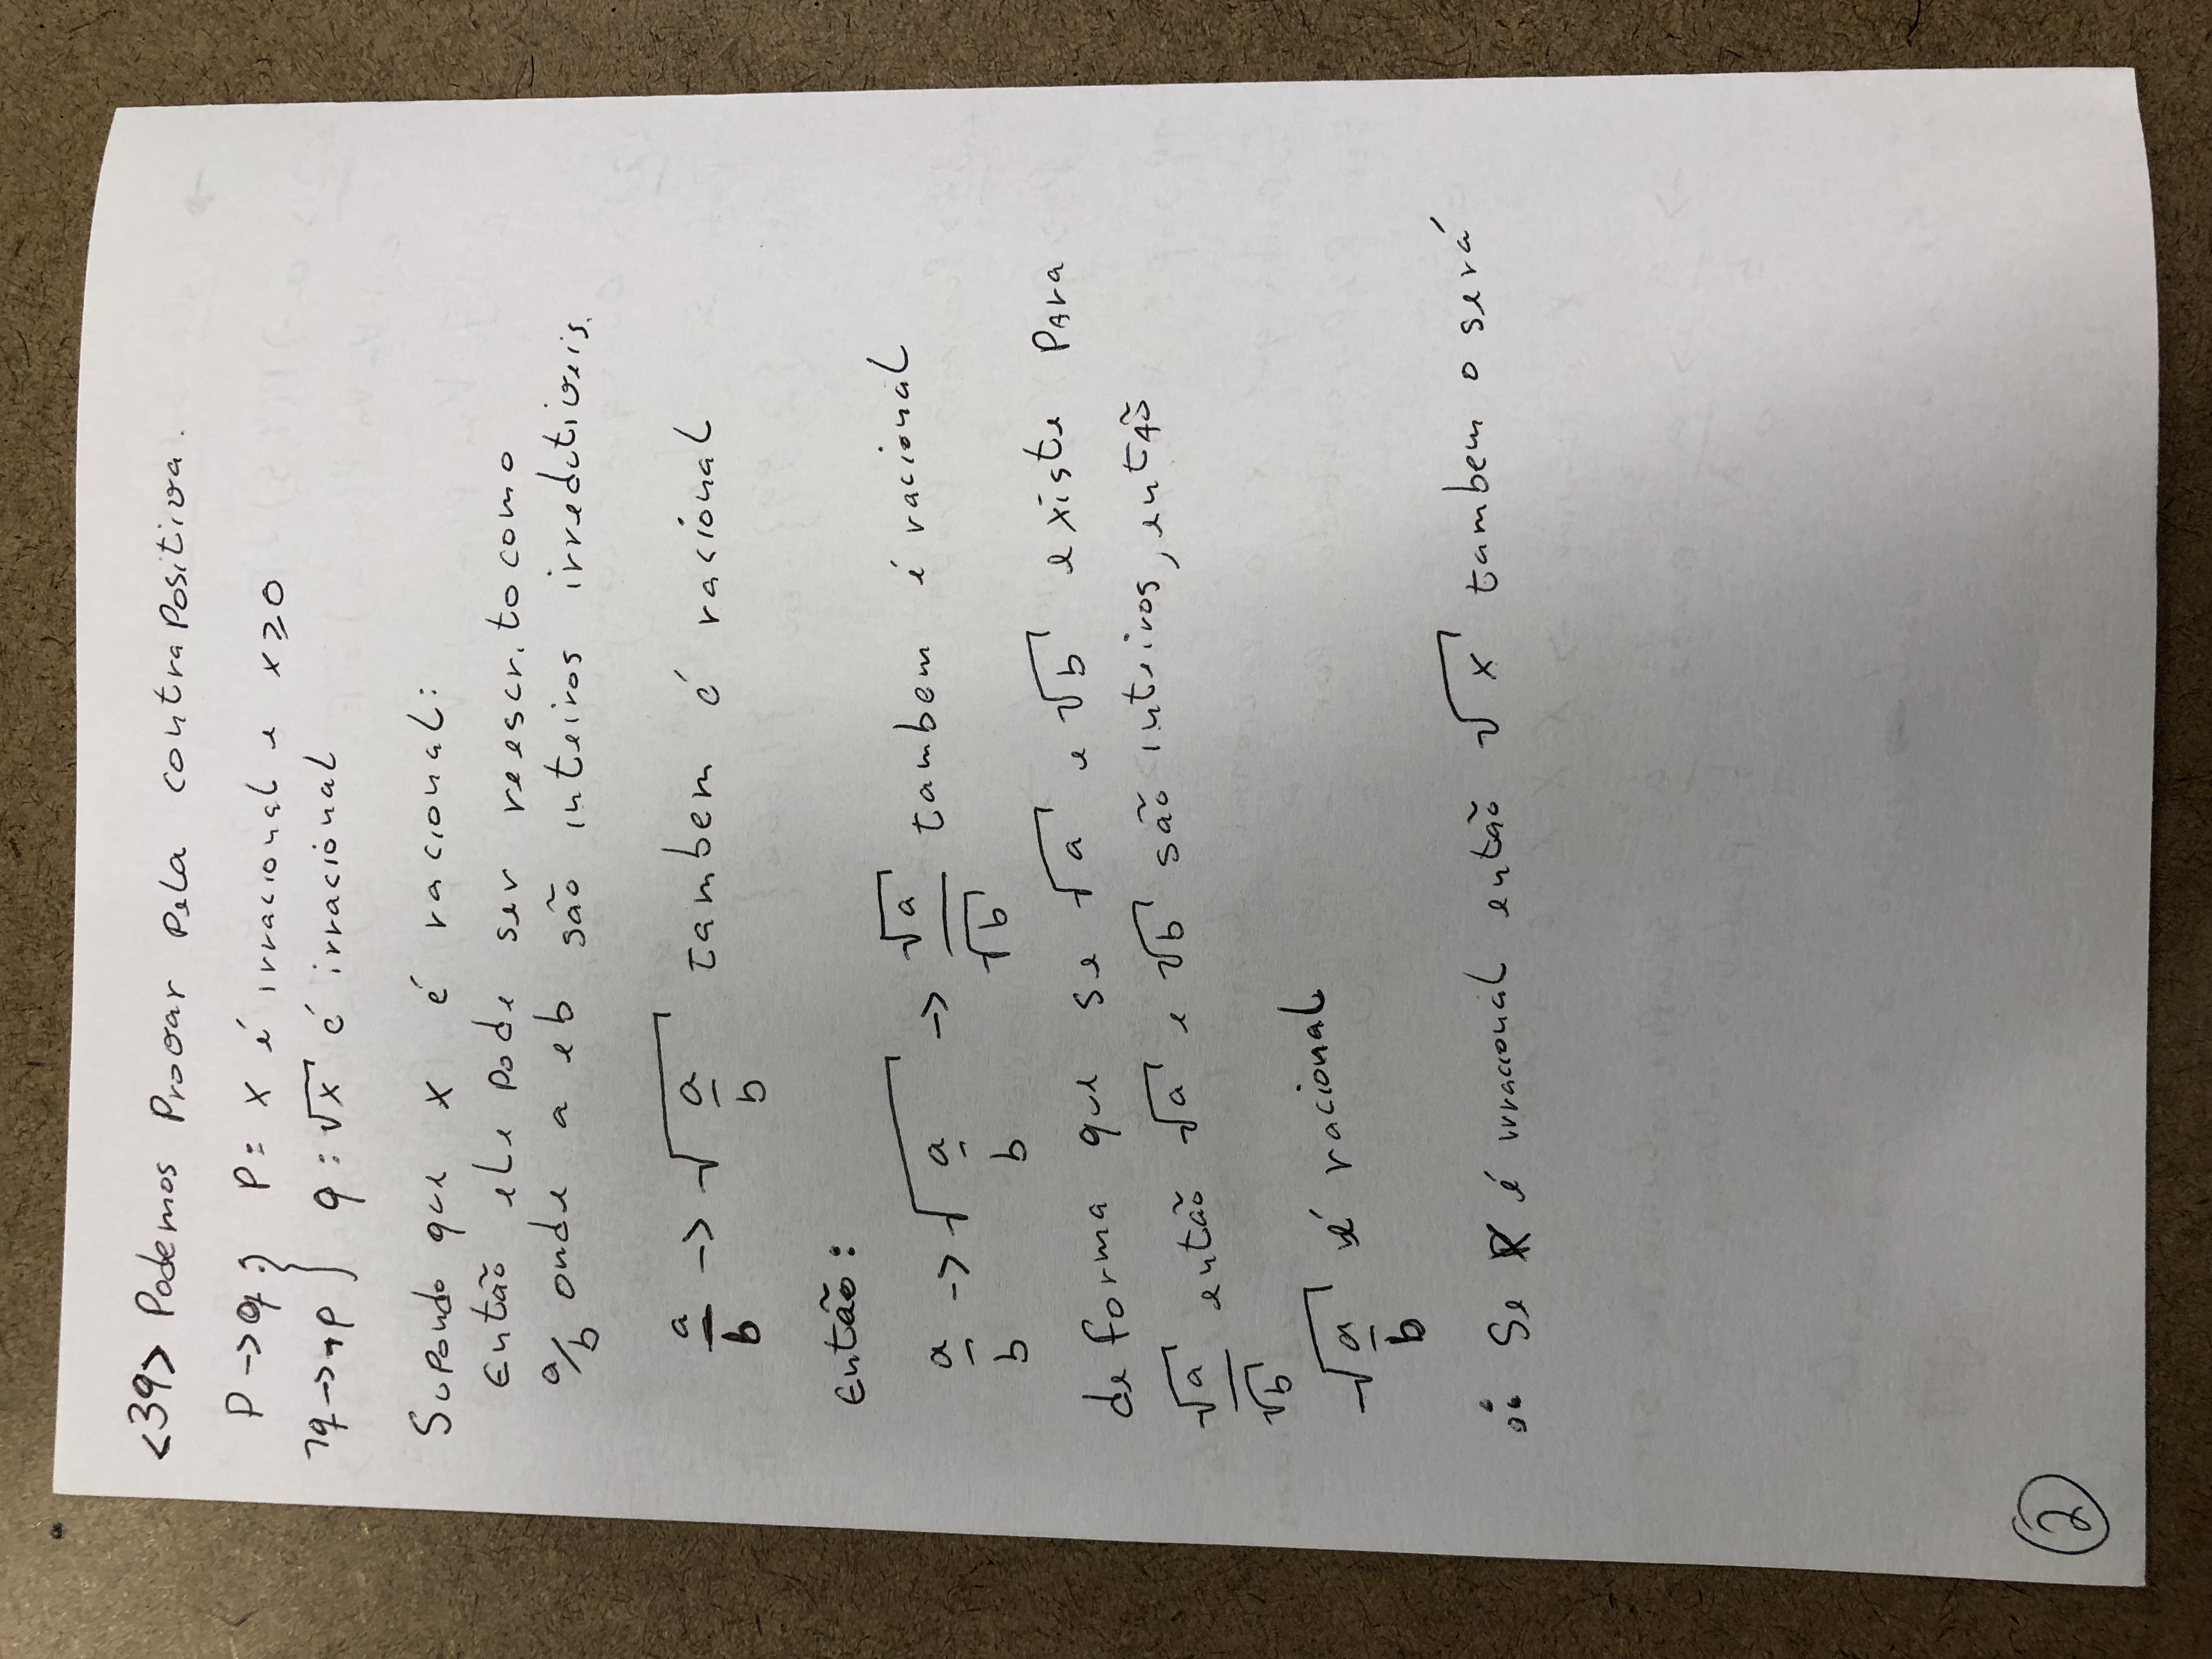 <39> Podemos Provar pela contrapositiva.
P -> q :} P: x é irracional e x ≥ 0
¬q -> ¬p } q : √x é irracional
Supondo que x é racional:
Então ele pode ser reescrito como
a/b onde a e b são inteiros irredutiveis.
a/b -> √(a/b) tambem é racional
Então:
a/b -> √(a/b) -> √a/√b tambem é racional
de forma que se √a e √b existe para
√a/√b então √a e √b são inteiros, então
√(a/b) é racional
∴ Se x é irracional então √x tambem o será
2